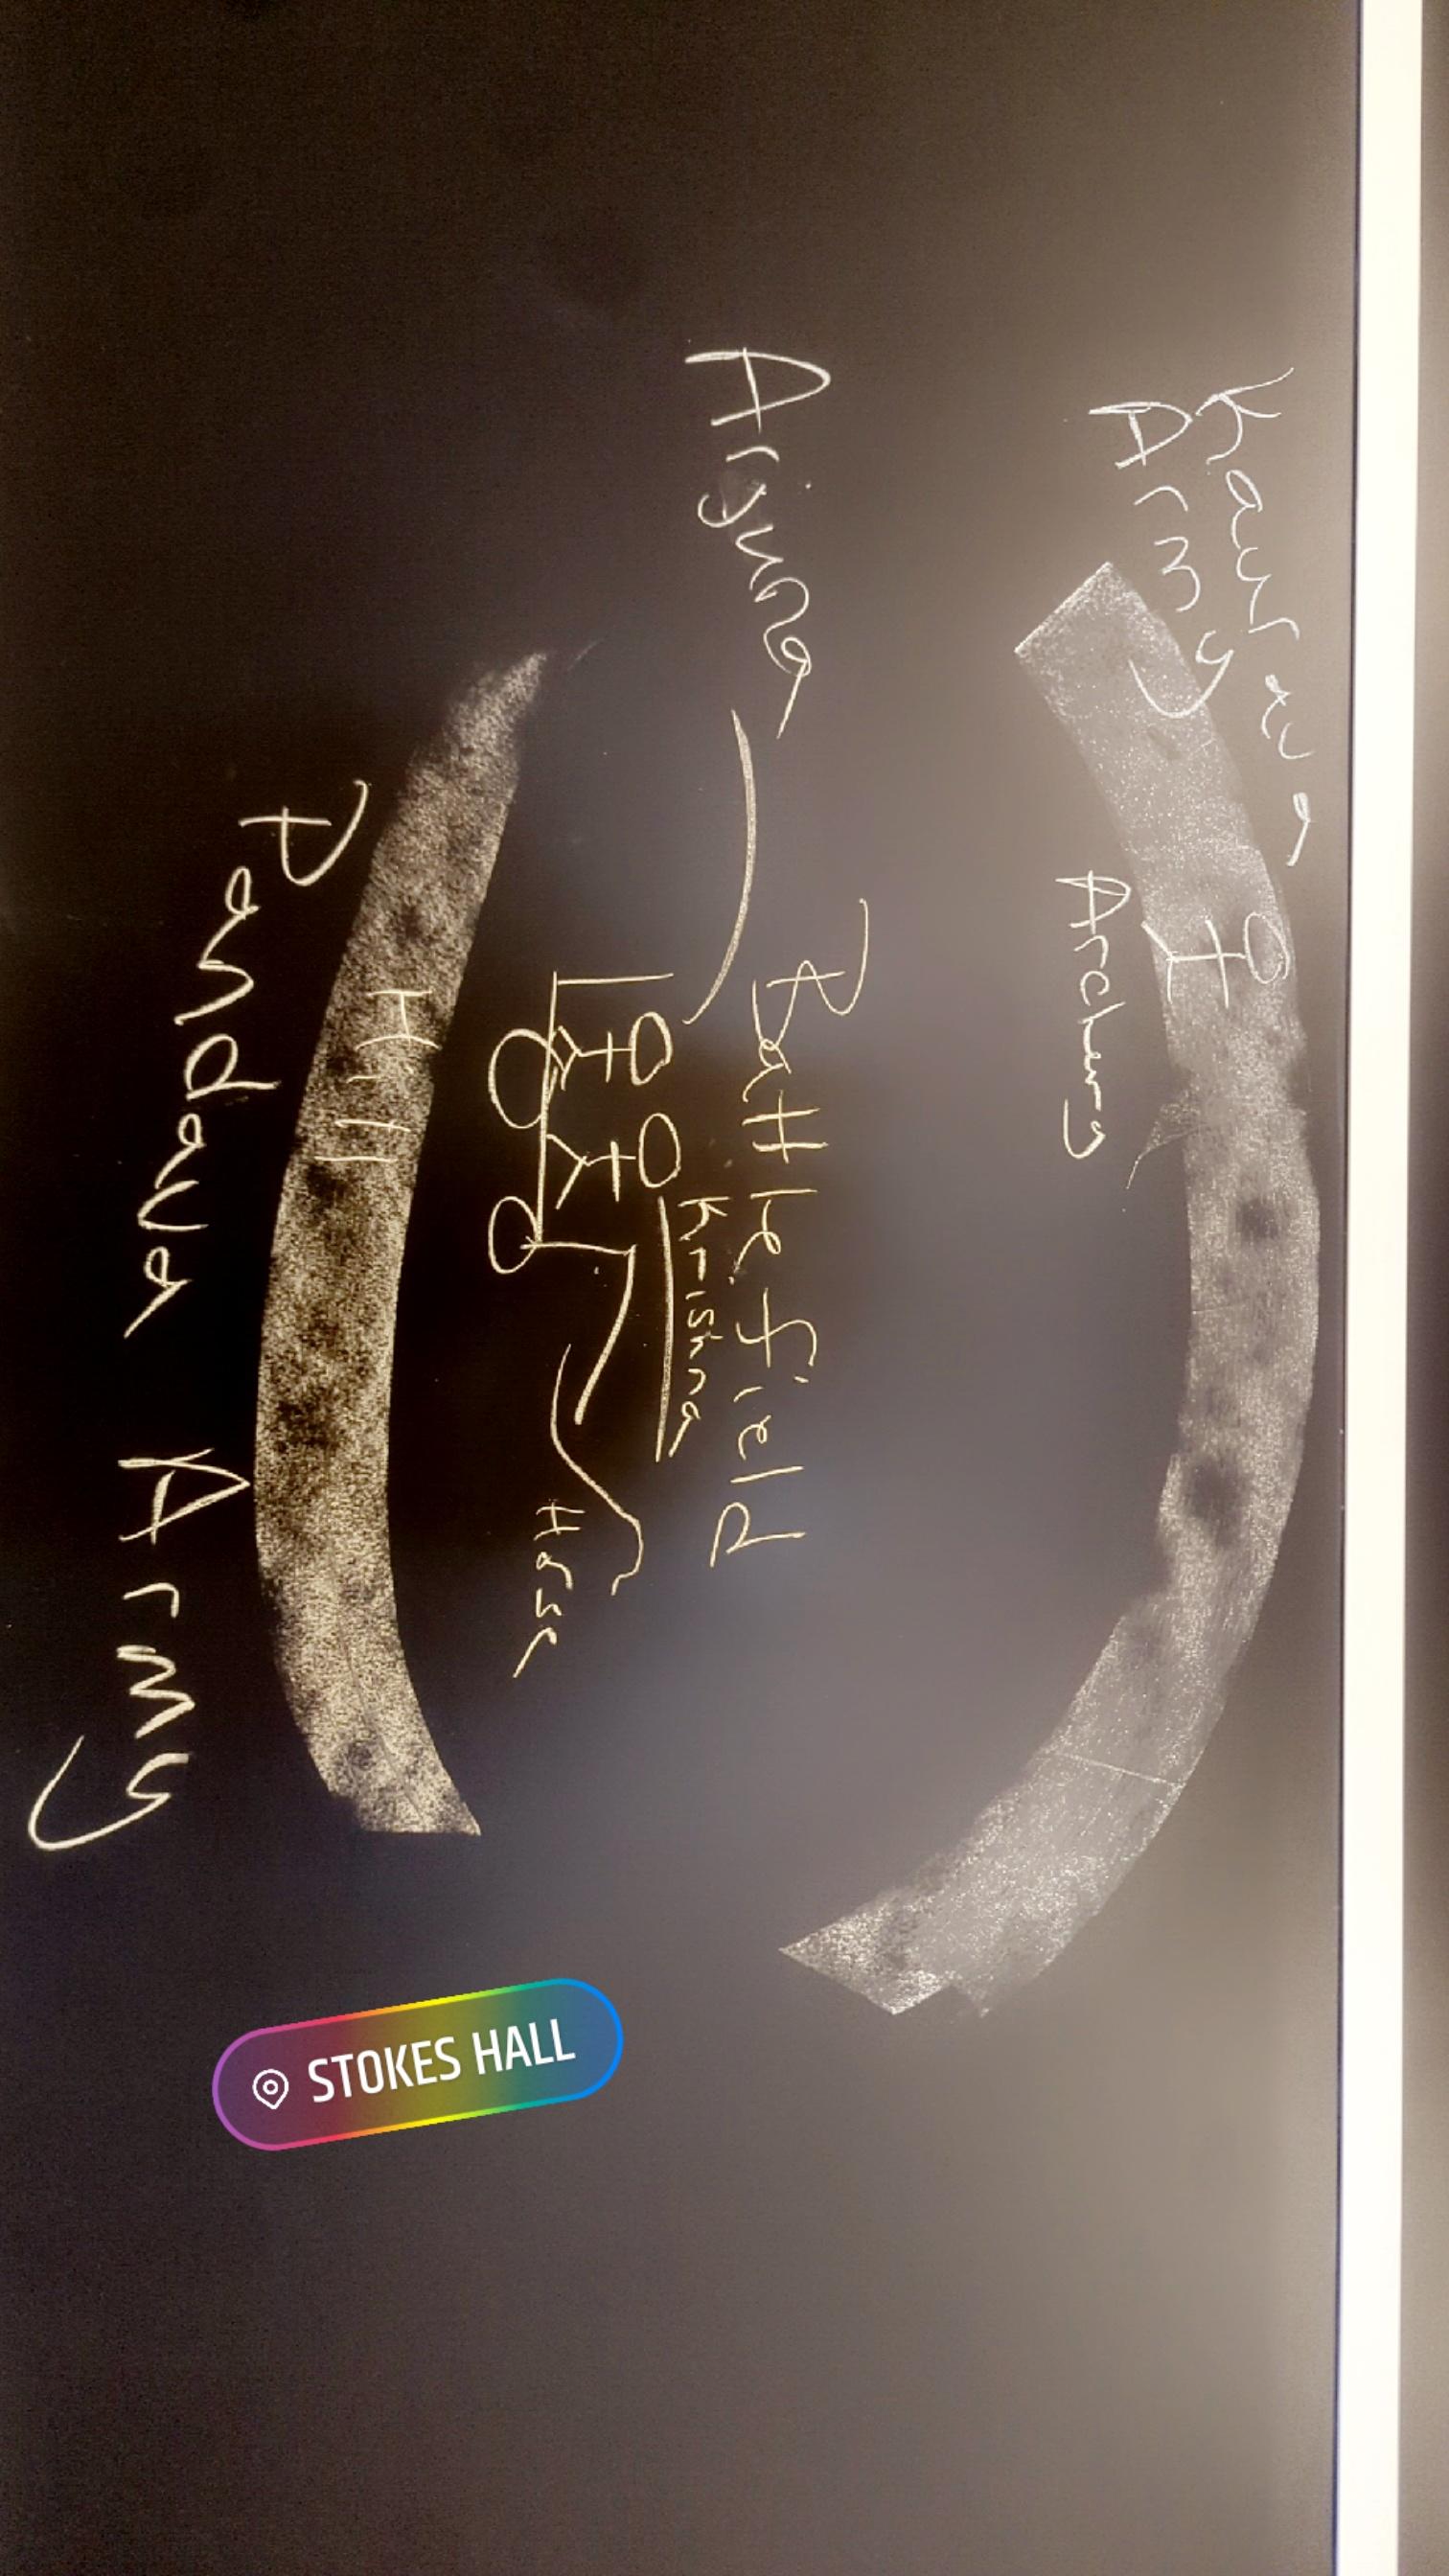 Kaurava
Army
Archery
Arjuna
Battlefield
Krishna
Horse
Hill
Pandava Army
STOKES HALL